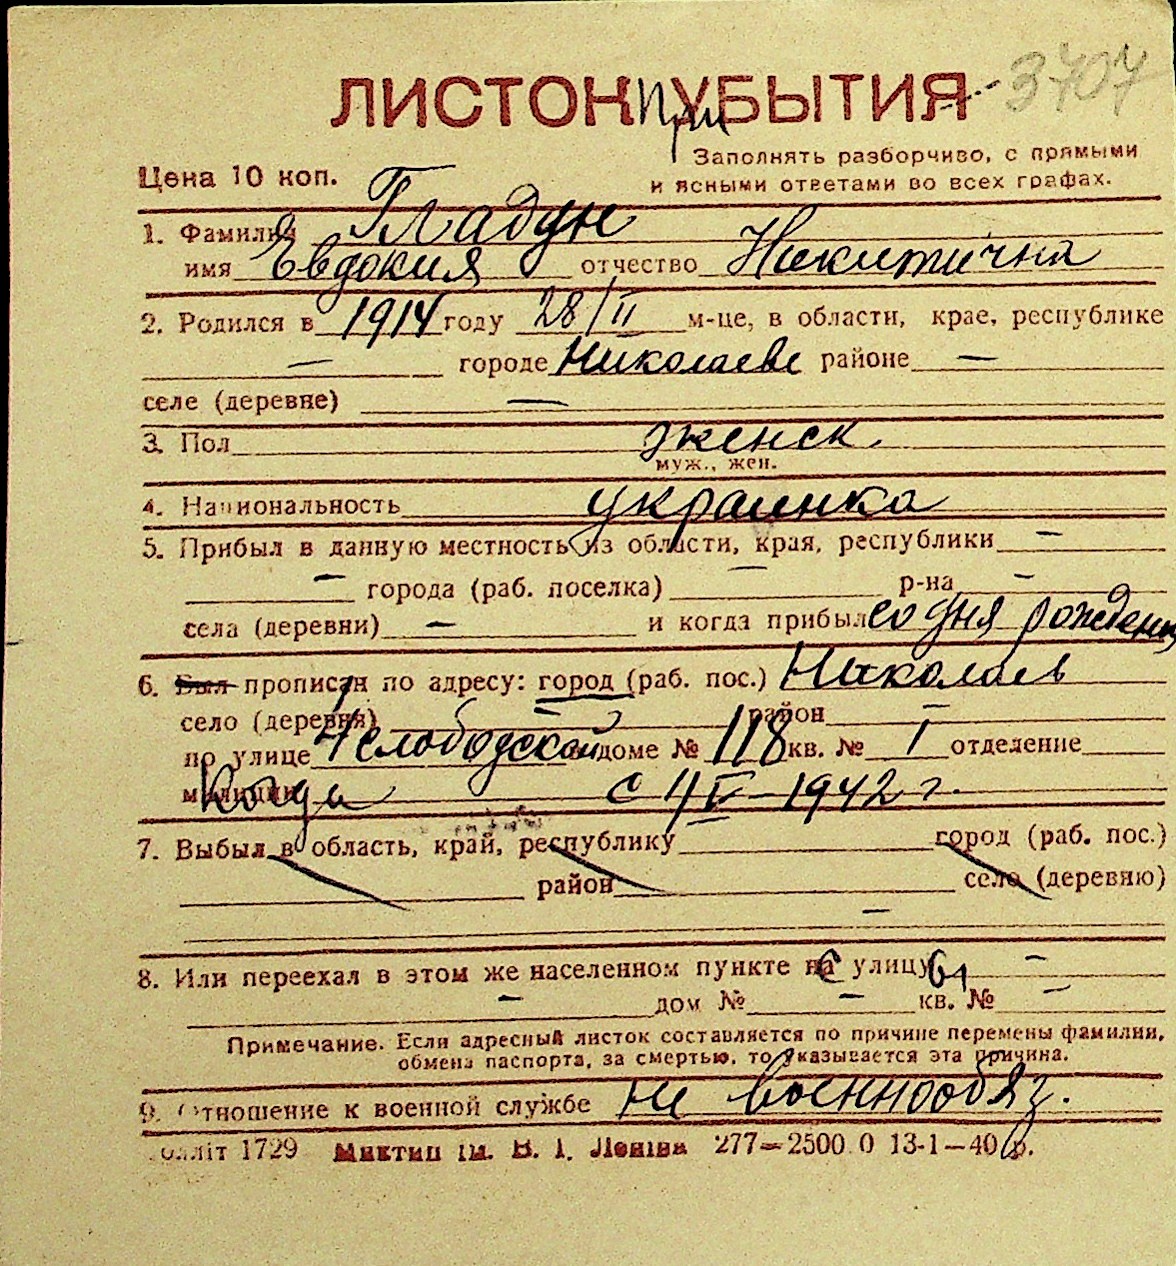 3707
ЛИСТОК При УБЫТИЯ
Цена 10 коп.
Заполнять разборчиво, с прямыми
и ясными ответами во всех графах.
1. Фамилия Гладун
имя Евдокия отчество Никитична
2. Родился в 1914 году 28/II м-це, в области, крае, республике
— городе Николаеве районе —
селе (деревне) —
3. Пол женск.
муж., жен.
4. Национальность украинка
5. Прибыл в данную местность из области, края, республики —
— города (раб. поселка) — р-на —
села (деревни) — и когда прибыл со дня рождения
6. Был прописан по адресу: город (раб. пос.) Николаев
село (деревня) — район —
по улице 4 слободской доме № 118 кв. № 1 отделение
милиции Когда с 4/V-1942 г.
7. Выбыл в область, край, республику город (раб. пос.)
район село (деревню)
—
8. Или переехал в этом же населенном пункте на с улицу —
— дом № — кв. № —
Примечание. Если адресный листок составляется по причине перемены фамилии,
обмена паспорта, за смертью, то указывается эта причина.
9. Отношение к военной службе не военнообяз.
Обліт 1729 Миктип ім. В. І. Леніна 277—2500.0 13-1—40 р.